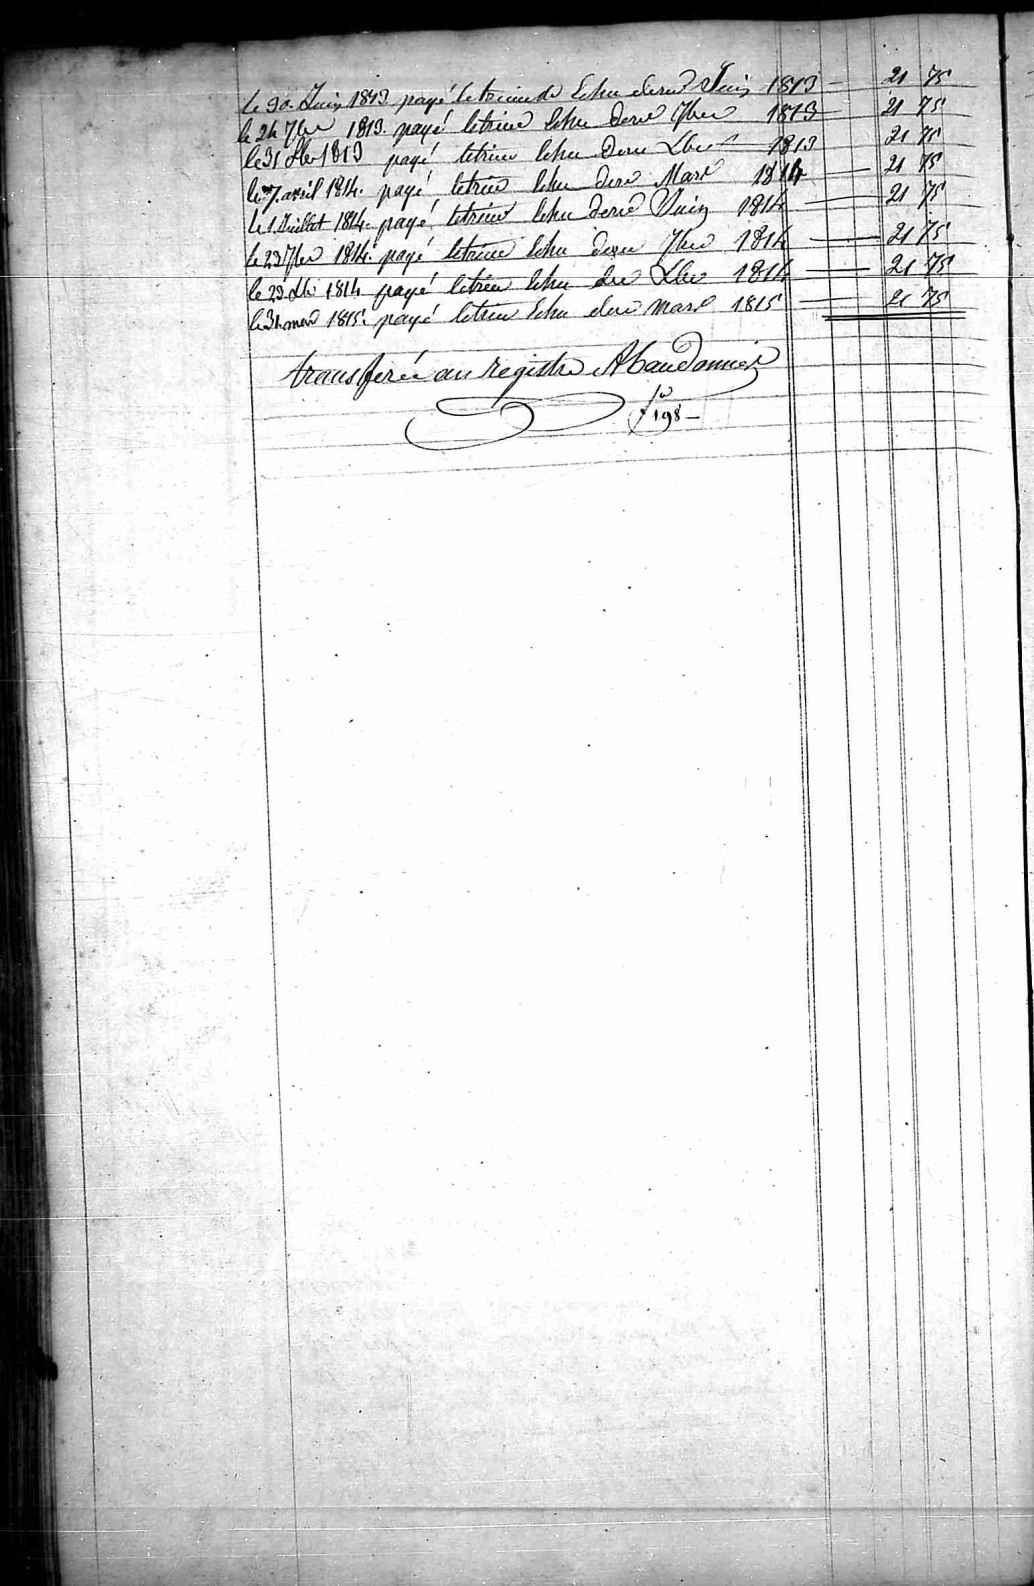 le 30 Juin 1813 payé letrimestre Echu dernr Juin 1813 — 21 75
le 24 7bre 1813. payé letrime Echu dernr 7bre 1813 21 75
le 31 Xbre 1813 payé letrime Echu dernr Xbre 1813 21 75
le 7 avril 1814. payé letrime Echu dernr Mars 1814 — 21 75
le 1 Juillet 1814. payé letrime Echu dernr Juin 1814 — 21 75
le 23 7bre 1814. payé letrime Echu dernr 7bre 1814 — 21 75
le 23 Xbre 1814 payé letrime Echu dernr Xbre 1814 — 21 75
le 31 mars 1815. payé letrime Echu dernr mars 1815 — 21 75
transferée au registre Abandonnés
fo 198 —